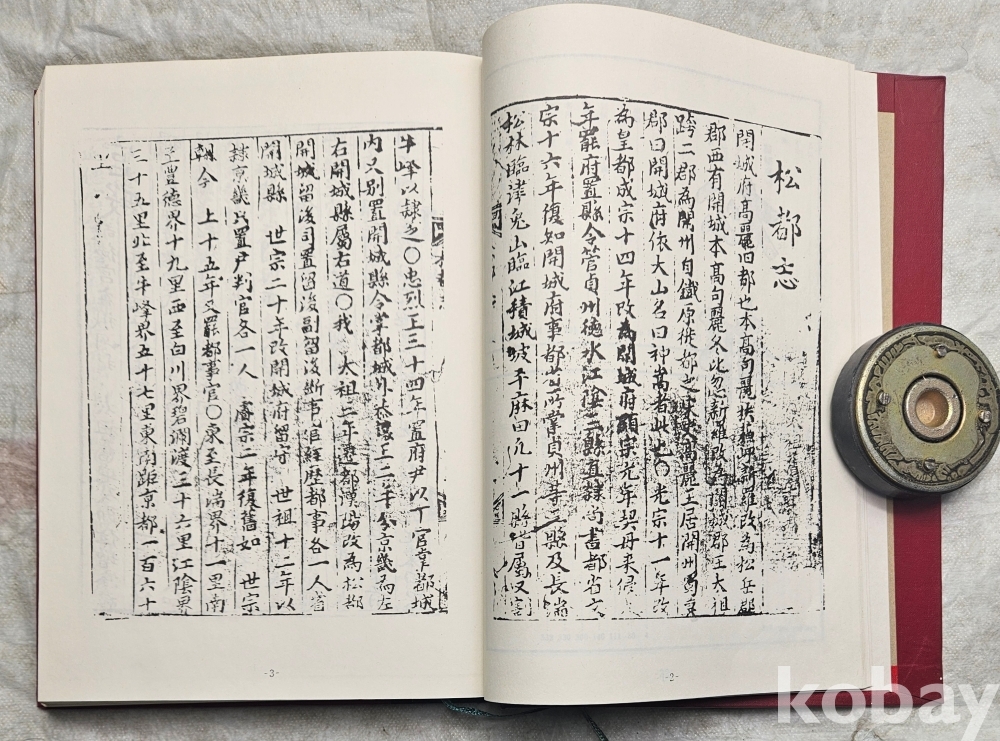 松都志
開城府高麗旧都也本高句麗扶蘇岬新羅改為松岳郡
郡西有開城本高句麗冬比忽新羅改為開城郡王太祖
跨二郡為開州自鐵原徙都之高麗王居開州蜀莫
郡曰開城府依大山名曰神嵩者此也〇光宗十一年改
為皇都成宗十四年改為開城府顯宗元年契丹来侵
年罷府置縣令管貞州德水江陰三縣直隷尚書都省文
宗十六年復知開城府事都省所掌貞州等三縣及長湍
松林臨津兎山臨江積城坡平麻田凡十一縣皆屬又割
-2-
牛峰以隷之〇忠烈王三十四年置府尹以下官掌都城
內又別置開城縣令掌都城外恭讓王二年分京畿為左
右開城縣屬右道〇我 太祖二年遷都漢陽改為松都
開城留後司置留後副留後断事官経歴都事各一人省
開城縣 世宗二十年改開城府留守 世祖十二年以
隷京畿只置尹判官各一人 睿宗二年復舊如 世宗
朝今 上十五年又罷都事官〇東至長湍界十一里南
至豊德界十九里西至白川界碧瀾渡三十六里江陰界
三十九里北至牛峰界五十七里東南距京都一百六十
-3-
kobay